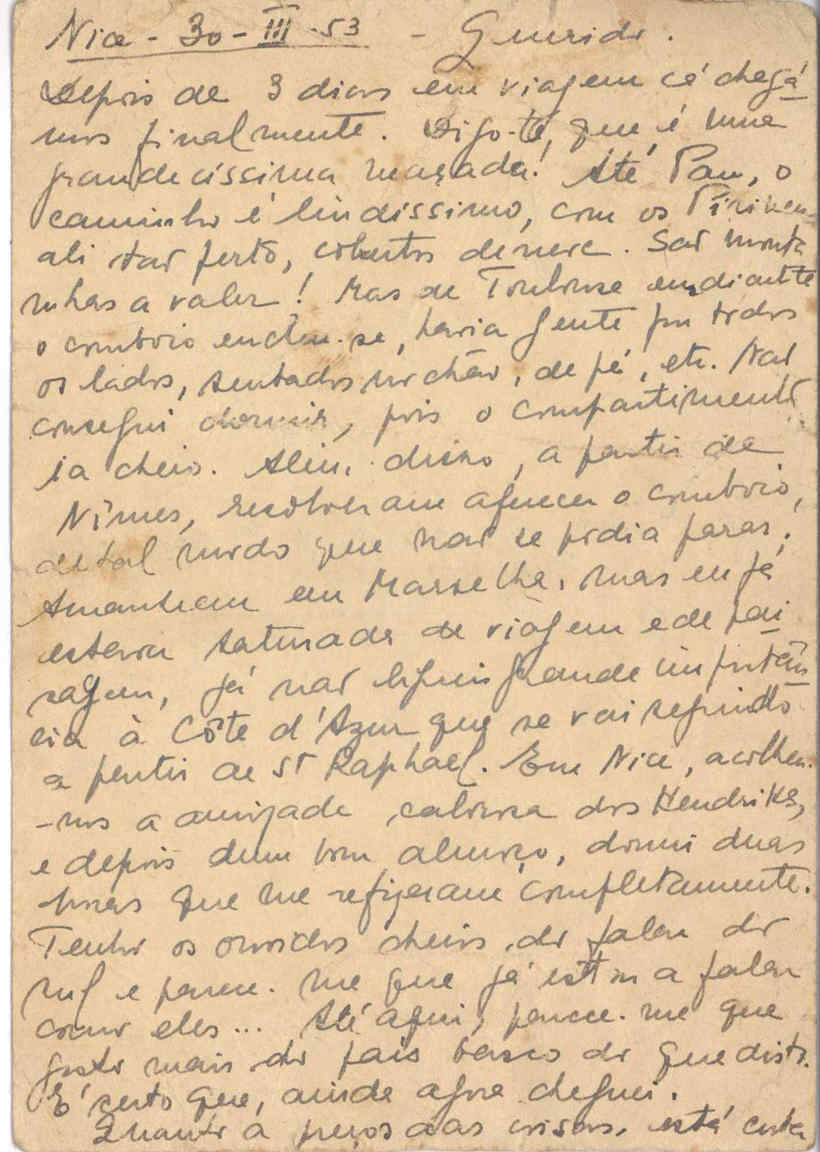 Nice - 30 - III - 53 - Querido.
Depois de 3 dias em viagem cá chegá
mos finalmente. Digo-te, que é uma
grandecíssima maçada! Até Pau, o
caminho é lindíssimo, com os Pirineus
ali tão perto, cobertos de neve. São monta
nhas a valer! Mas de Toulouse em diante
o comboio encheu-se, havia gente por todos
os lados, sentados no chão, de pé, etc. Não
consegui dormir, pois o compartimento
ia cheio. Além disso, a partir de
Nîmes, resolveram aquecer o comboio,
de tal modo que não se podia parar.
Amanhecem em Marselha, mas eu já
estava saturada de viagem e de pai
sagem, já não liguei grande importân
cia à Côte d'Azur que se vai seguindo
a partir de St Raphael. Em Nice, acolheu
-nos a amizade calorosa dos Hendriks,
e depois dum bom almoço, dormi duas
horas que me refizeram completamente.
Tenho os ouvidos cheios do falar do
sul e parece-me que já estou a falar
como eles... Até aqui, parece-me que
gosto mais do país basco do que disto.
É certo que, ainda agora cheguei.
Quanto a preços das coisas, está